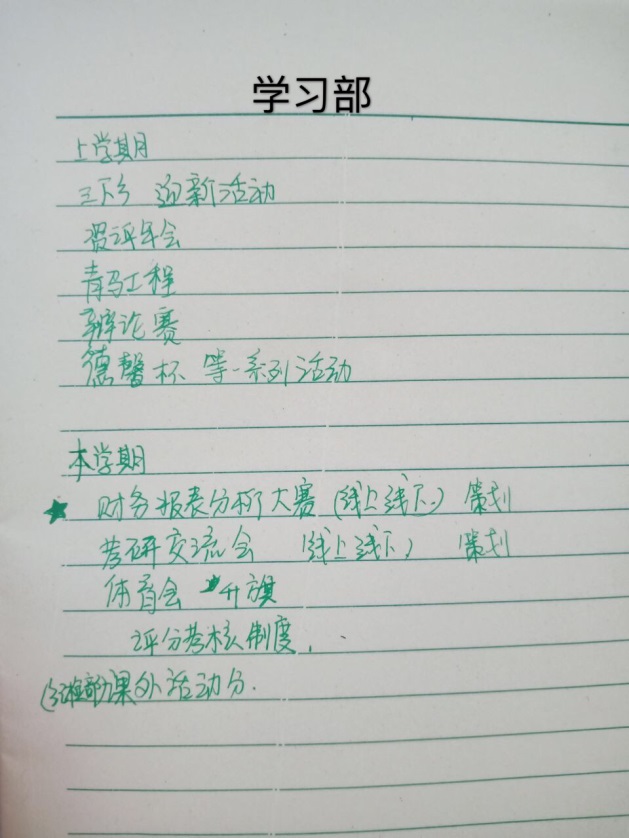 学习部
上学期
三下乡 迎新活动
测评年会
青马工程
辩论赛
德馨杯 等一系列活动
本学期
★ 财务报表分析大赛(线上线下) 策划
考研交流会 (线上线下) 策划
体育会 升旗
评分考核制度.
课外活动分.